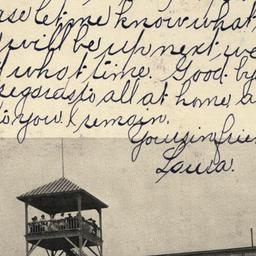 ase let me know what
will be up next we
what time. Good by
regards to all at home a
to you I remain.
Yours in frie
Laura.